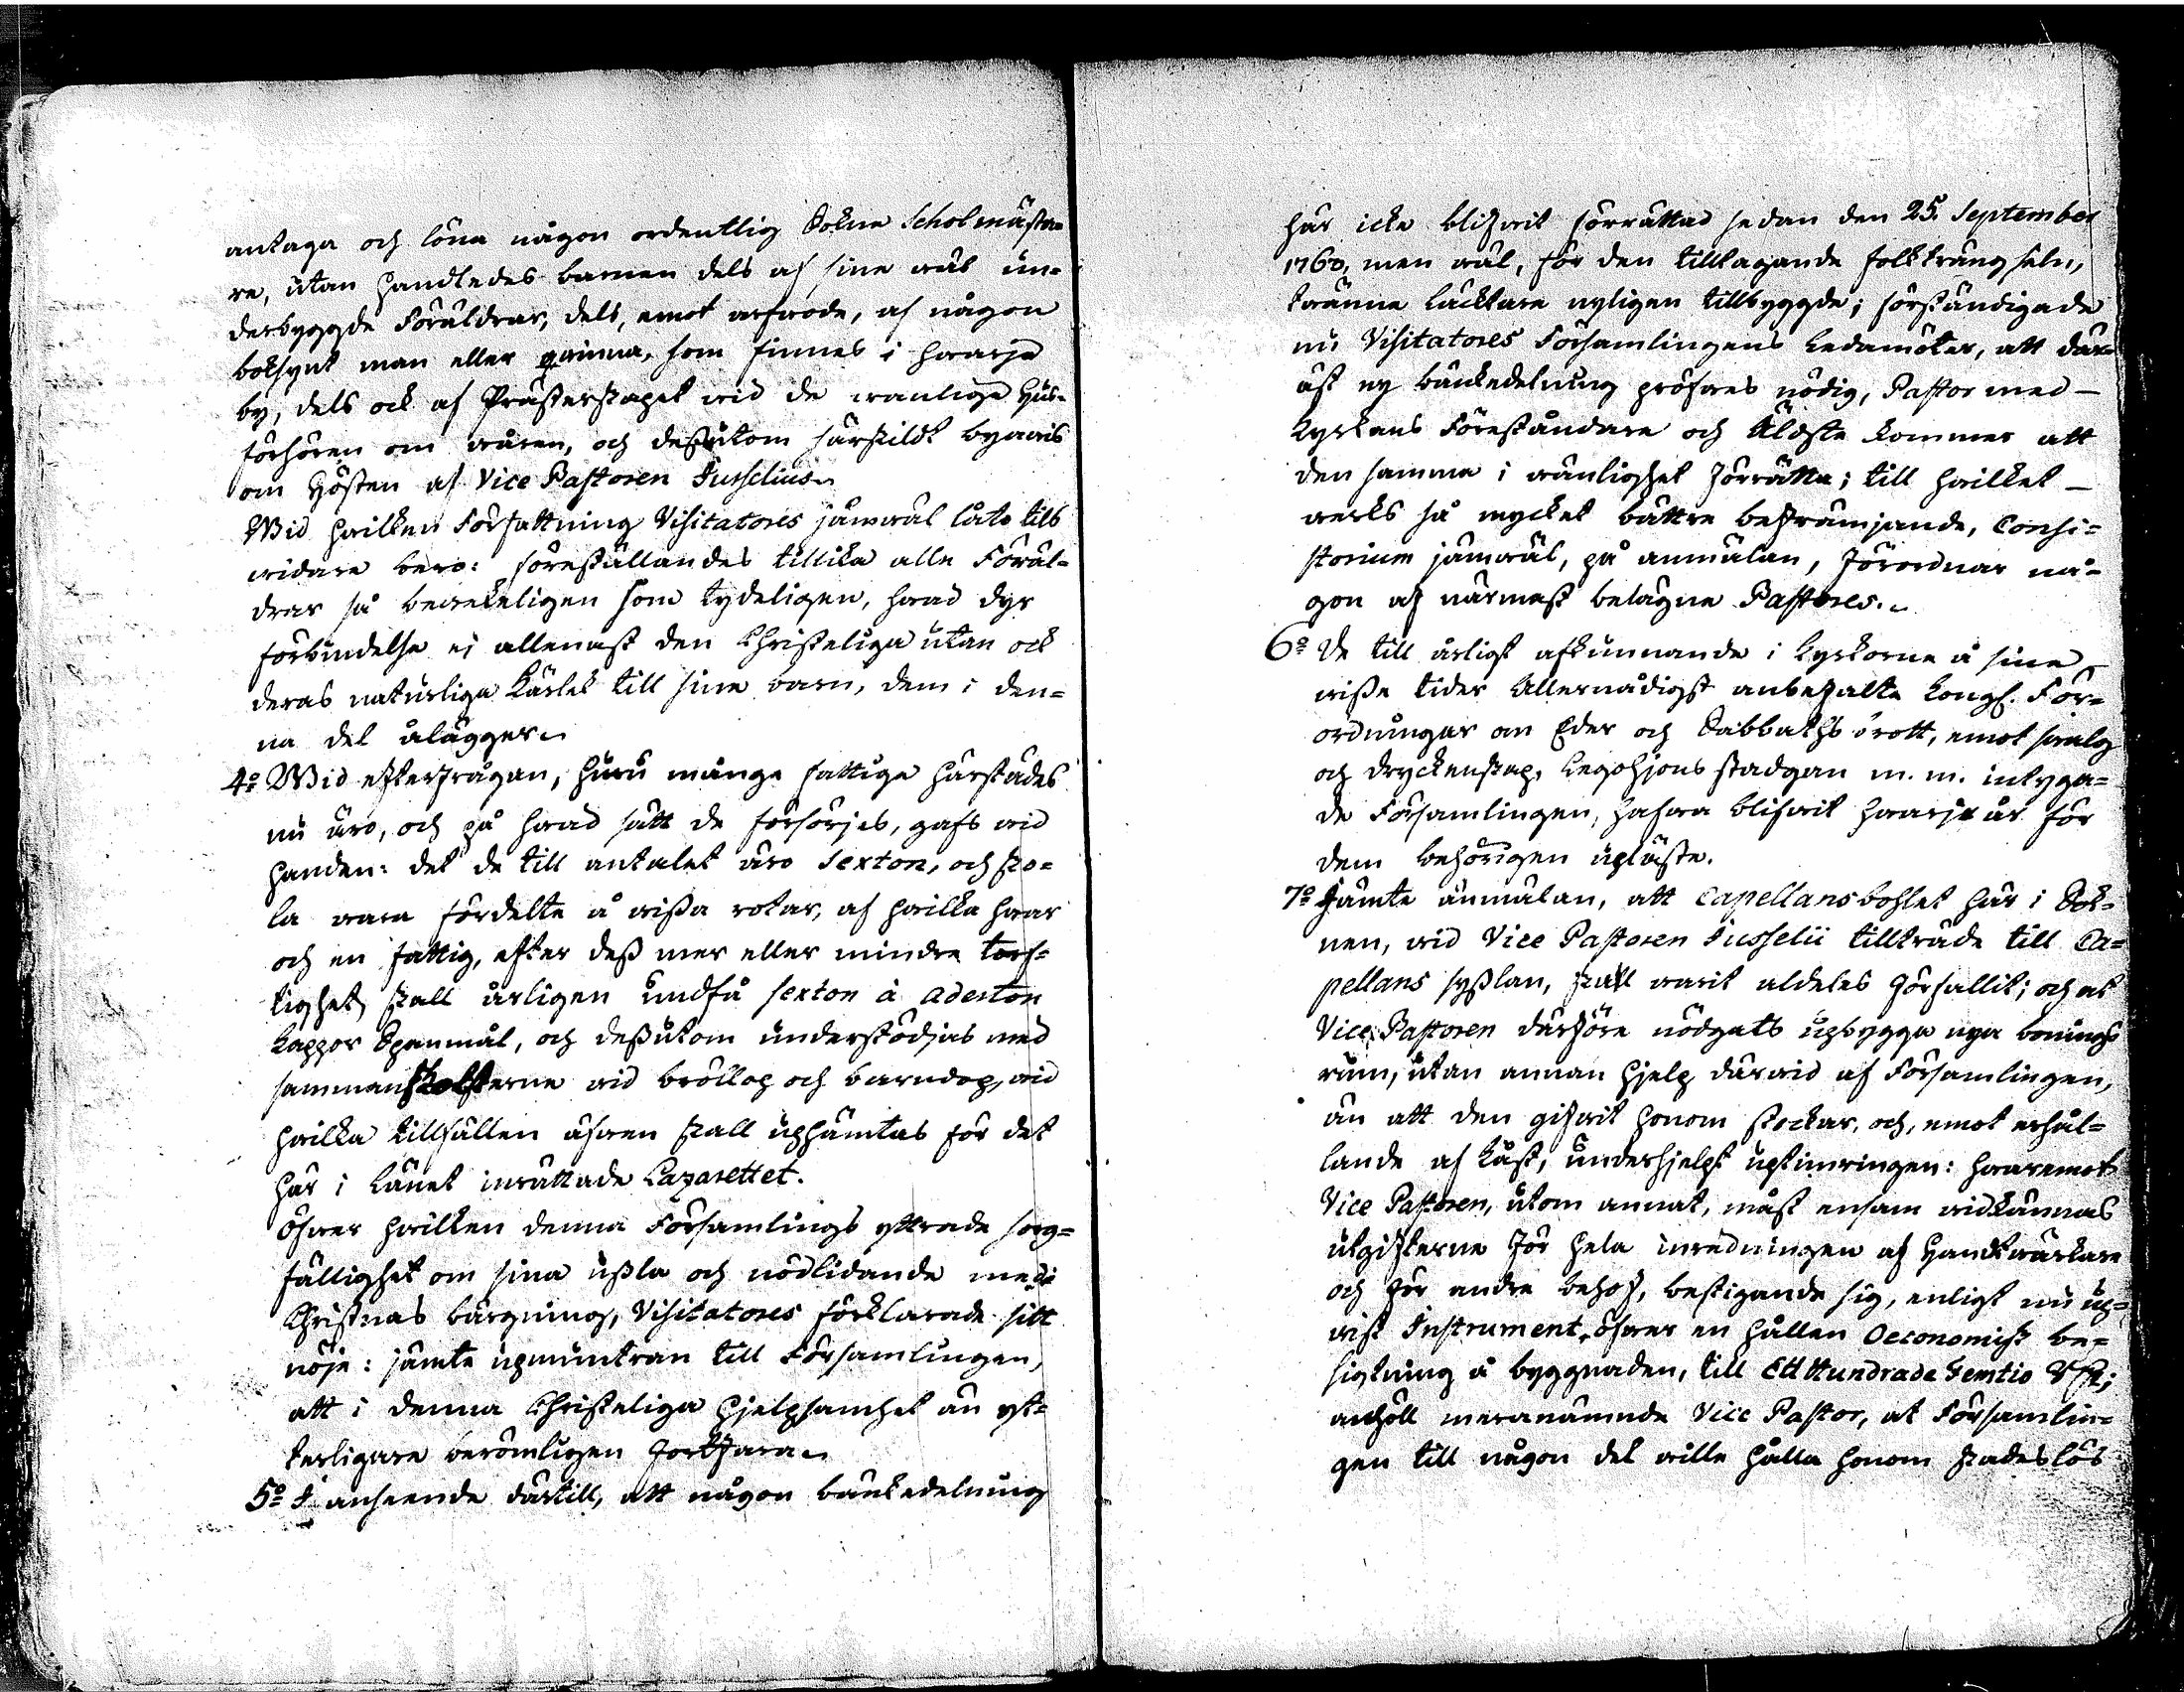 antaga och löna någon ordentlig Sokne Scholmästa-
re, utan handledes barnen dels af sine wäl un-
derbyggde Föräldrar, dels, emot arfwode, af någon
boksynt man eller qwinna, som finnes i hwarje
by, dels ock af Prästerskapet wid de wanlige Hus-
förhören om wåren, och dessutom särskildt bywis
om Hösten af Vice Pastoren Jusselius.
Wid hwilken Författning Visitatores jämwäl låto tils
widare bero: föreställandes tillika alla Föräl-
drar så bewekeligen som tydeligen, hwad dyr
förbindelse ej allenast den Christeliga utan ock
deras naturliga Kärlek till sina barn, dem i den-
na del ålägger.
4:o Wid efterfrågan, huru många fattige härstädes
nu äro, och på hwad sätt de försörjes, gafs wid
handen: det de till antalet äro Sexton, och sko-
la wara fördelte å wissa rotar, af hwilka hwar
och en fattig, efter dess mer eller mindre torf-
tighet, skall årligen undfå sexton à aderton
kappor Spanmål, och dessutom understödjas med
sammanskotterne wid bröllop och barndop, wid
hwilka tillfällen äfwen skall uphämtas för det
här i Länet inrättade Lazarettet.
Öfwer hwilken denna Församlings yttrade sorg-
fällighet om sina usla och nödlidande med-
Christnas bärgning, Visitatores förklarade sitt
nöje: jämte upmuntran till Församlingen,
att i denna Christeliga hjelpsamhet än yt-
terligare berömligen fortfara.
5:o I anseende dertill, att någon bänkedelning
här icke blifwit förrättad sedan den 25. September
1760, men wäl, för den tilltagande folkträngseln,
twänne Läcktare nyligen tillbyggde; förständigade
nu Visitatores Församlingens Ledamöter, att där-
äst ny bänkedelning pröfwes nödig, Pastor med
Kyrkans Föreståndare och Äldste kommer att
den samma i wänlighet förrätta; till hwilket
werks så mycket bättre befrämjande, Consi-
storium jämwäl, på anmälan, förordnar nå-
gon af närmast belägne Pastores.
6:o De till årligt afkunnande i Kyrkorne å sine
wisse tider Allernådigst anbefalte Kongl. För-
ordningar om Eder och Sabbathsbrott, emot swalg
och dryckenskap, Legohjons stadgan m. m. intyga-
de Församlingen, hafwa blifwit hwarje år för
dem behörigen upläste.
7:o Jämte anmälan, att Capellansbohlet här i Sok-
nen, wid Vice Pastoren Jusselii tillträde till Ca-
pellans sysslan, skall warit aldeles förfallit; och at
Vice Pastoren därföre nödgats upbygga nya bonings
rum, utan annan hjelp därwid af Församlingen,
än att den gifwit honom stockar, och, emot erhål-
lande af kåst, underhjelpt uptimringen: hwaremot
Vice Pastoren, utom annat, måst ensam widkännas
utgifterne för hela inredningen af Handtwärkare
och för andra behof, bestigande sig, enligt nu up-
wist Instrument, öfwer en hållen Oeconomisk be-
sigtning å byggnaden, till Ett Hundrade Femtio Rd;
anhöll meranämnde Vice Pastor, at Församlin-
gen till någon del wille hålla honom skadeslös